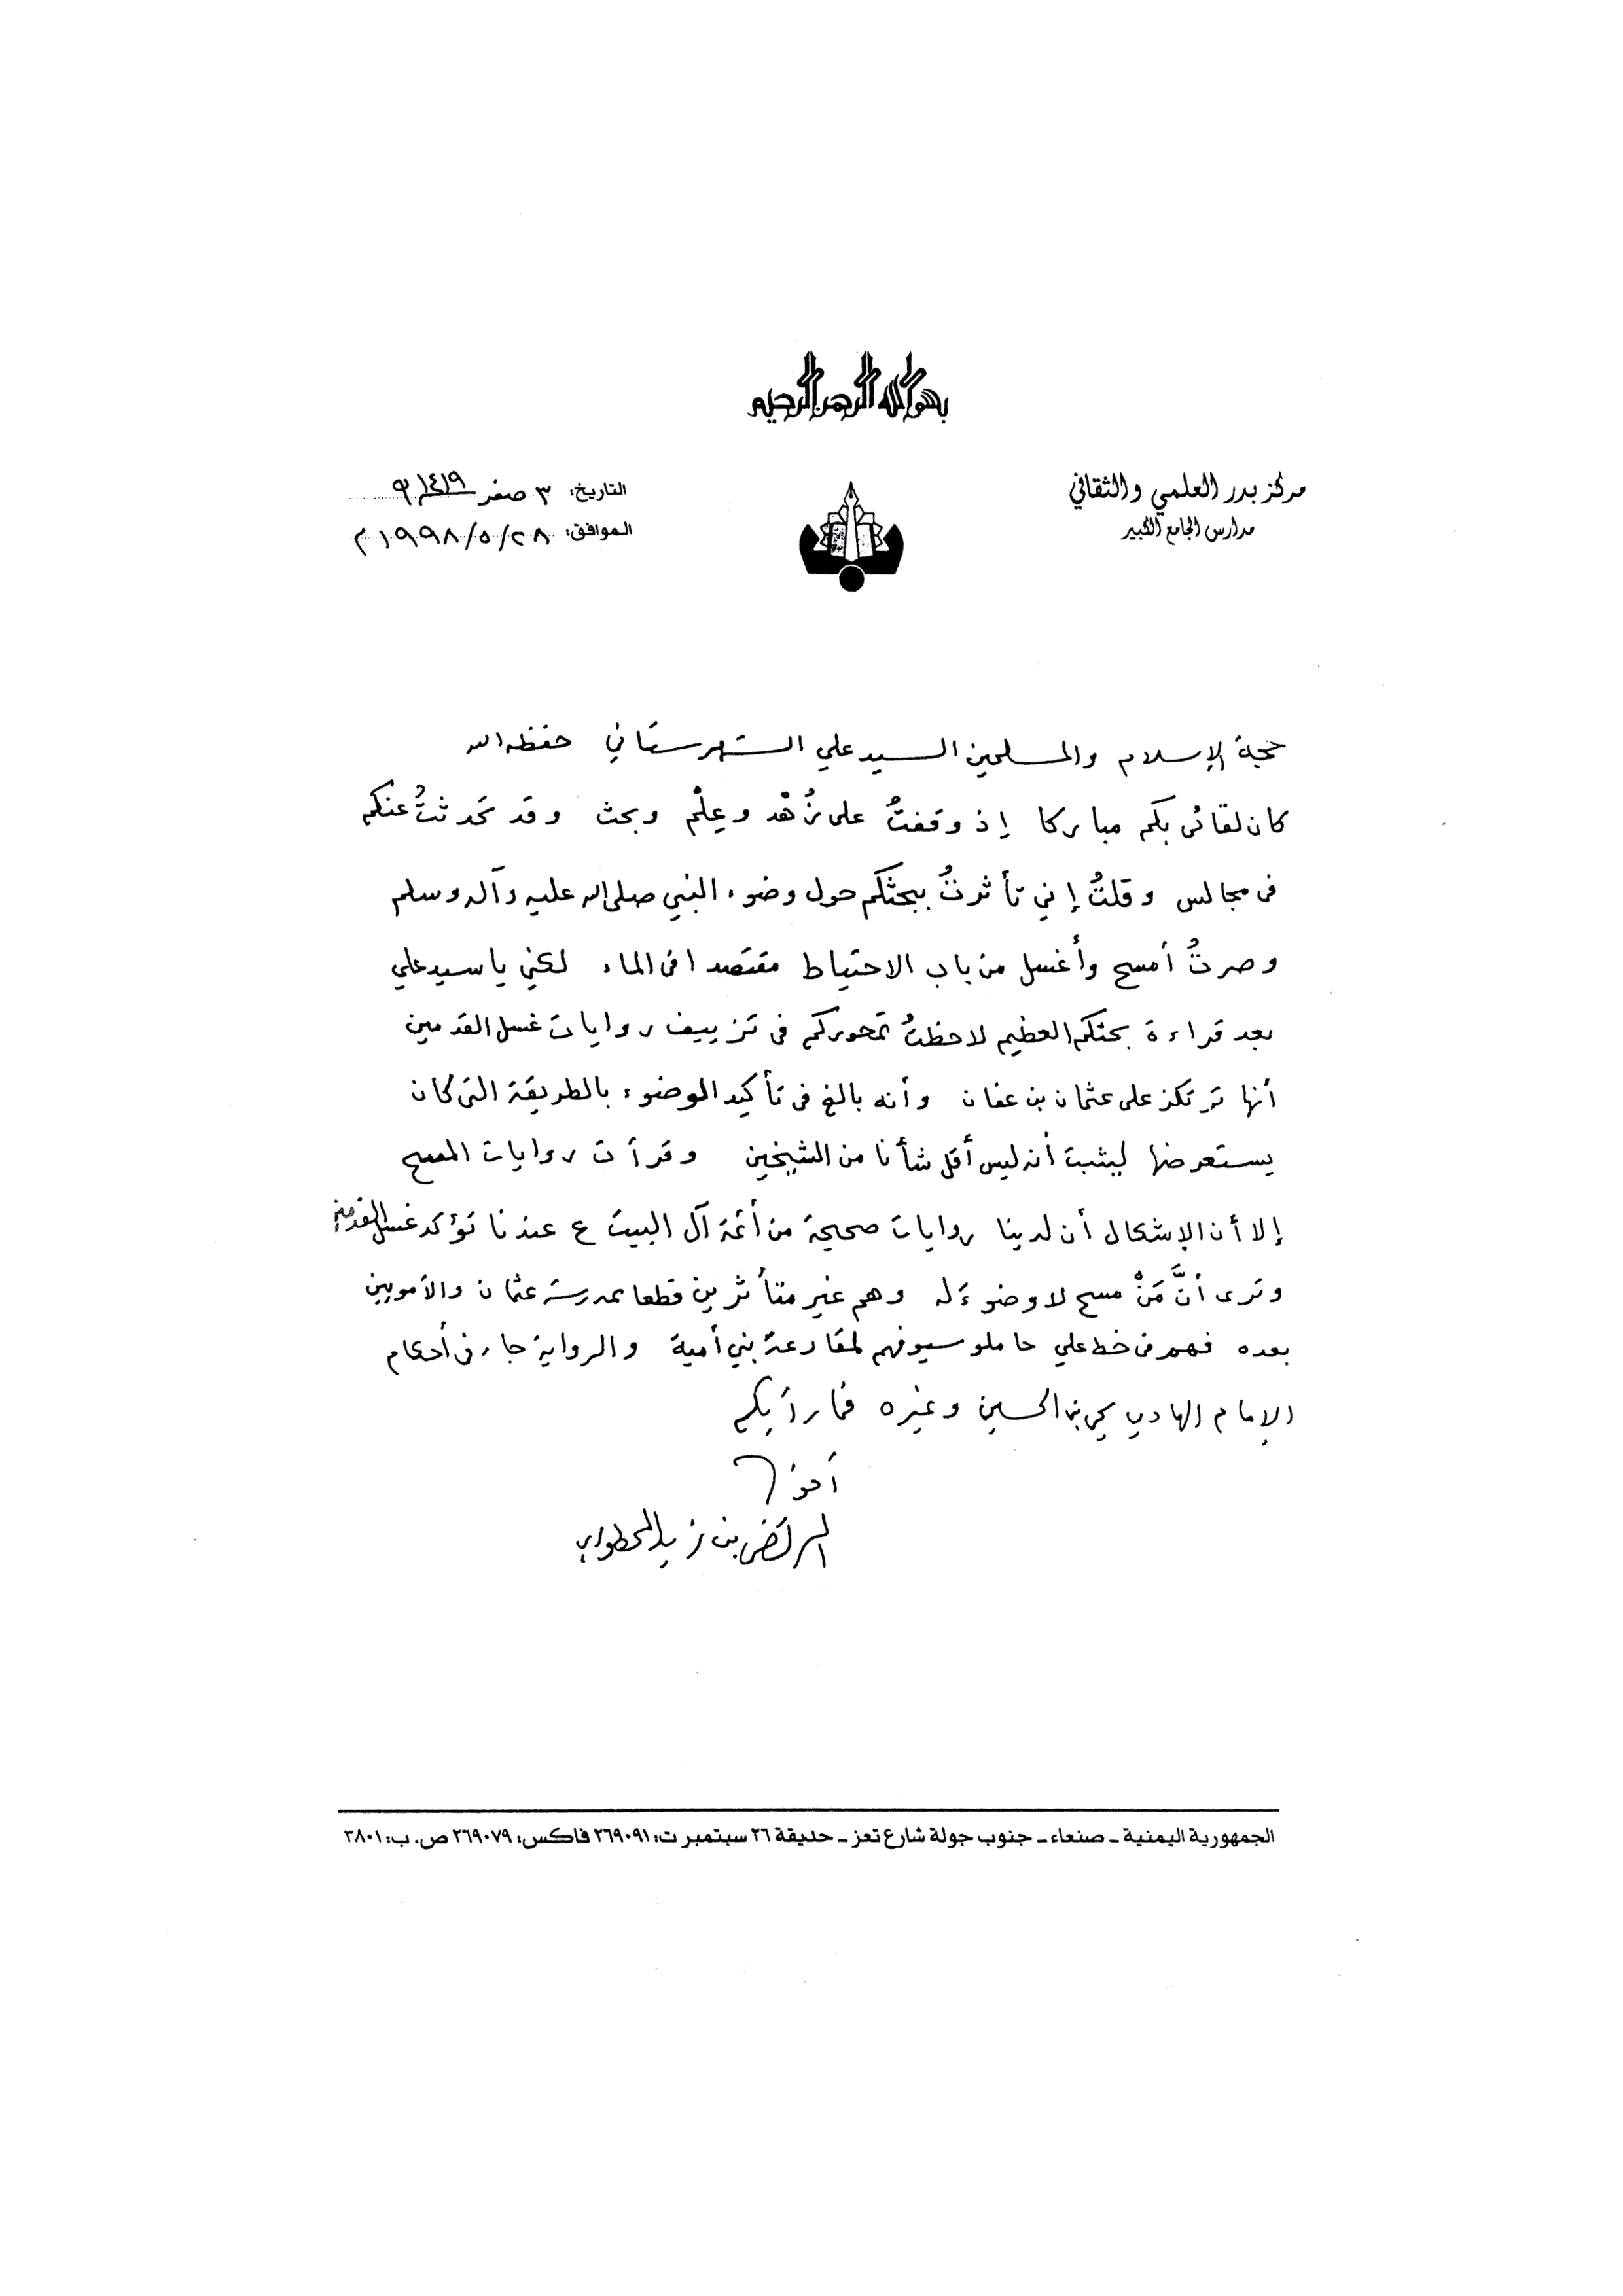 بسم الله الرحمن الرحيم
مركز بدر العلمي والثقافي
مدارس الجامع الكبير
التاريخ: ٣ صفر ١٤١٩ هـ
الموافق: ٢٨/٥/١٩٩٨م
حجة الإسلام والمسلمين السيد علي الشهرستاني حفظه الله
كان لقائي بكم مباركا إذ وقفتُ على زُهْد وعِلْم وبحث وقد تحدثتُ عنكم
في مجالس وقلتُ إني تأثرتُ ببحثكم حول وضوء النبي صلى الله عليه وآله وسلم
وصرتُ أمسح وأغسل من باب الاحتياط مقتصدا في الماء لكني يا سيد علي
بعد قراءة بحثكم العظيم لاحظتُ تمحوركم في تزييف روايات غسل القدمين
أنها ترتكز على عثمان بن عفان وأنه بالغ في تأكيد الوضوء بالطريقة التي كان
يستعرضها ليثبت أنه ليس أقل شأنا من الشيخين وقرأت روايات المسح
إلا أن الإشكال أن لدينا روايات صحيحة من أئمة آل البيت ع عندنا تؤكد غسل القدمين
وترى أنَّ مَنْ مسح لا وضوءَ له وهم غير متأثرين قطعا بمدرسة عثمان والأمويين
بعده فهم في خط علي حاملو سيوفهم لمقارعة بني أمية والرواية جاء في أحكام
الإمام الهادي يحيى بن الحسين وغيره فما رأيكم
أخوكم
المرتضى بن زيد المحطوري
الجمهورية اليمنية ـ صنعاء ـ جنوب جولة شارع تعز ـ حديقة ٢٦ سبتمبر ت: ٢٦٩٠٩١ فاكس: ٢٦٩٠٧٩ ص. ب: ٣٨٠١